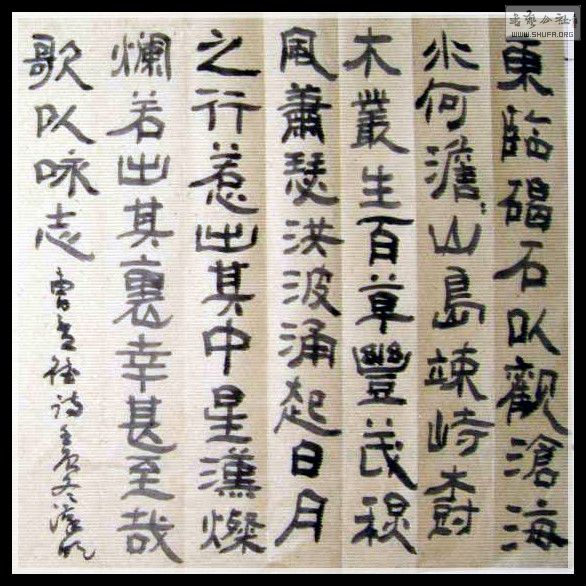 東臨碣石以觀滄海
水何澹々山島竦峙樹
木叢生百草豐茂秋
風蕭瑟洪波涌起日月
之行若出其中星漢燦
爛若出其裏幸甚至哉
歌以咏志
曹孟德诗
书艺公社
WWW.SHUFA.ORG